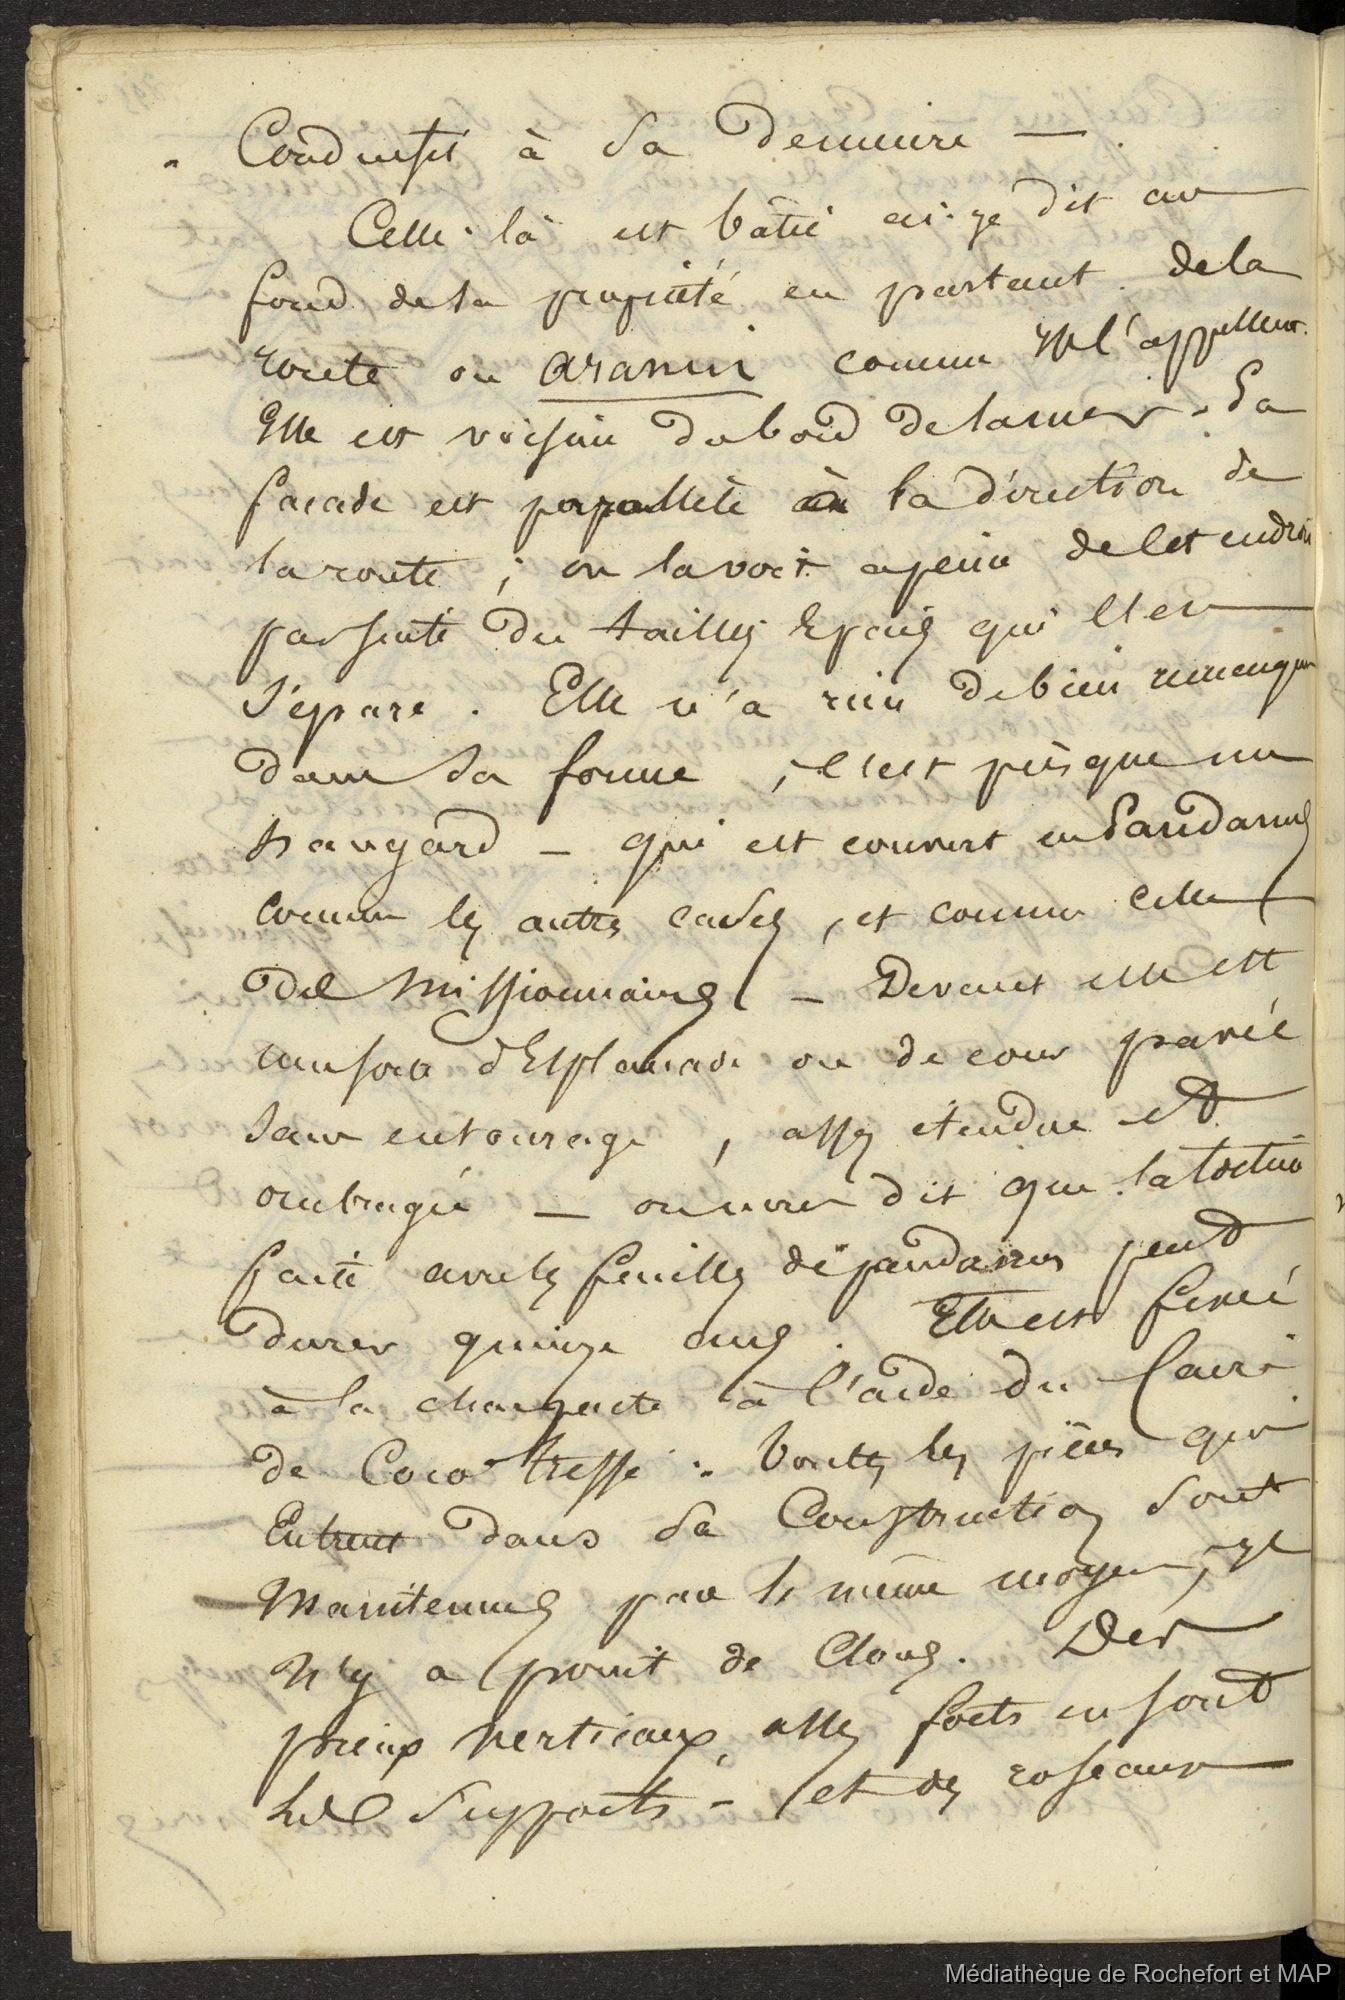 Conduisit à sa demeure —
Celle-là est bâtie ai-je dit au
fond de la propriété en partant de la
route ou aranui comme ils l'appellent.
Elle est voisine du bord de la mer. Sa
façade est parallèle à la direction de
la route ; on la voit à peine de cet endroit
par suite du taillis épais qui l'en
sépare. Elle n'a rien de bien remarqu
dans sa forme, c'est presque un
hangard — qui est couvert en Pandanus
comme les autres cases, et comme celle
des Missionnaires — Devant elle est
une sorte d'Esplanade ou de cour pavée
sans entourage, assez étendue et
ombragée — on nous dit que la toiture
faite avec les feuilles de pandanus peut
durer quinze ans. Elle est fixée
à la charpente à l'aide du Caire
de Coco tressé. Toutes les pièces qui
Entrent dans sa Construction sont
Maintenues par le même moyen, il
n'y a point de Clous. Des
pieux verticaux assez forts en sont
les Supports — et des roseaux
Médiathèque de Rochefort et MAP